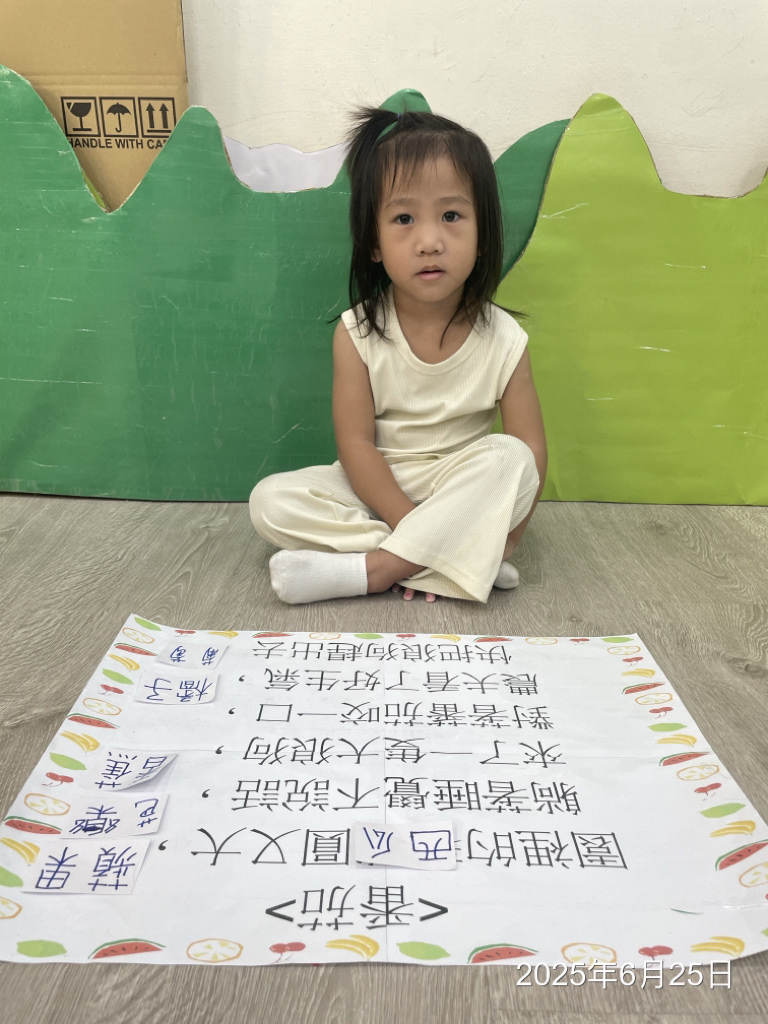 <蕃茄>
園裡的西瓜圓又大，
躺著睡覺不說話，
來了一隻大狼狗，
對著蕃茄咬一口，
農夫看了好生氣，
快把狼狗趕出去
蘋果
芭樂
香蕉
橘子
葡萄
HANDLE WITH CA
2025年6月25日